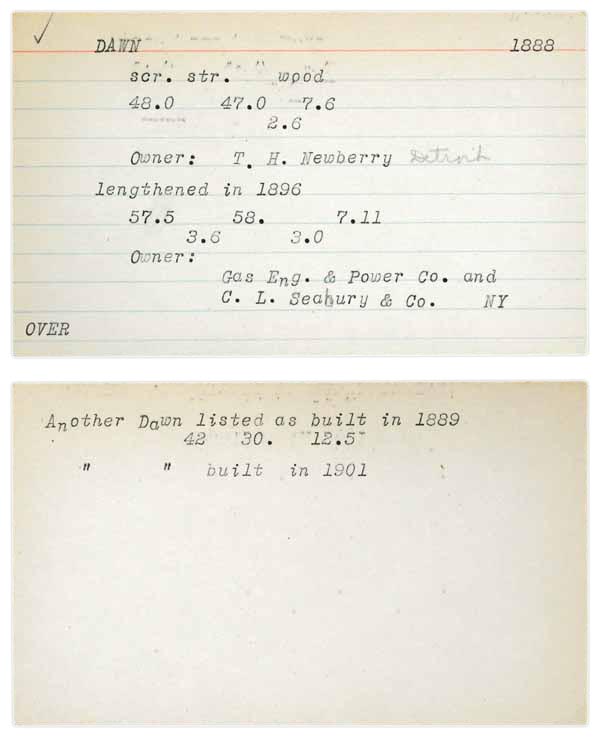 DAWN 1888
scr. str. wood
48.0 47.0 7.6
2.6
Owner: T. H. Newberry Detroit
lengthened in 1896
57.5 58. 7.11
3.6 3.0
Owner:
Gas Eng. & Power Co. and
C. L. Seabury & Co. NY
OVER
Another Dawn listed as built in 1889
42 30. 12.5
" " built in 1901